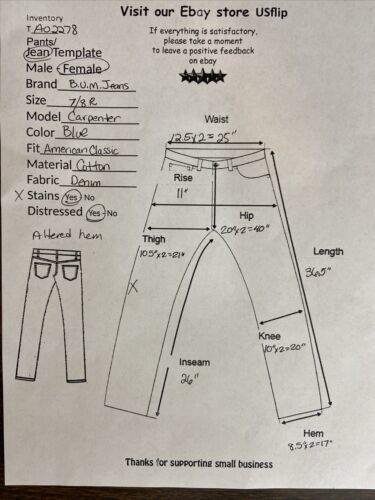 Visit our Ebay store USflip
Inventory
T A02278
Pants/
Jean Template
Male Female
Brand B.U.M. Jeans
Size 7/8 R
Model Carpenter
Color Blue
Fit American Classic
Material Cotton
Fabric Denim
X Stains Yes - No
Distressed Yes - No
Altered hem
If everything is satisfactory,
please take a moment
to leave a positive feedback
on ebay
Waist
12.5x2=25"
Rise
11"
Hip
20"x2=40"
Thigh
10.5"x2=21"
X
Length
36.5"
Knee
10"x2=20"
Inseam
26"
Hem
8.5"x2=17"
Thanks for supporting small business